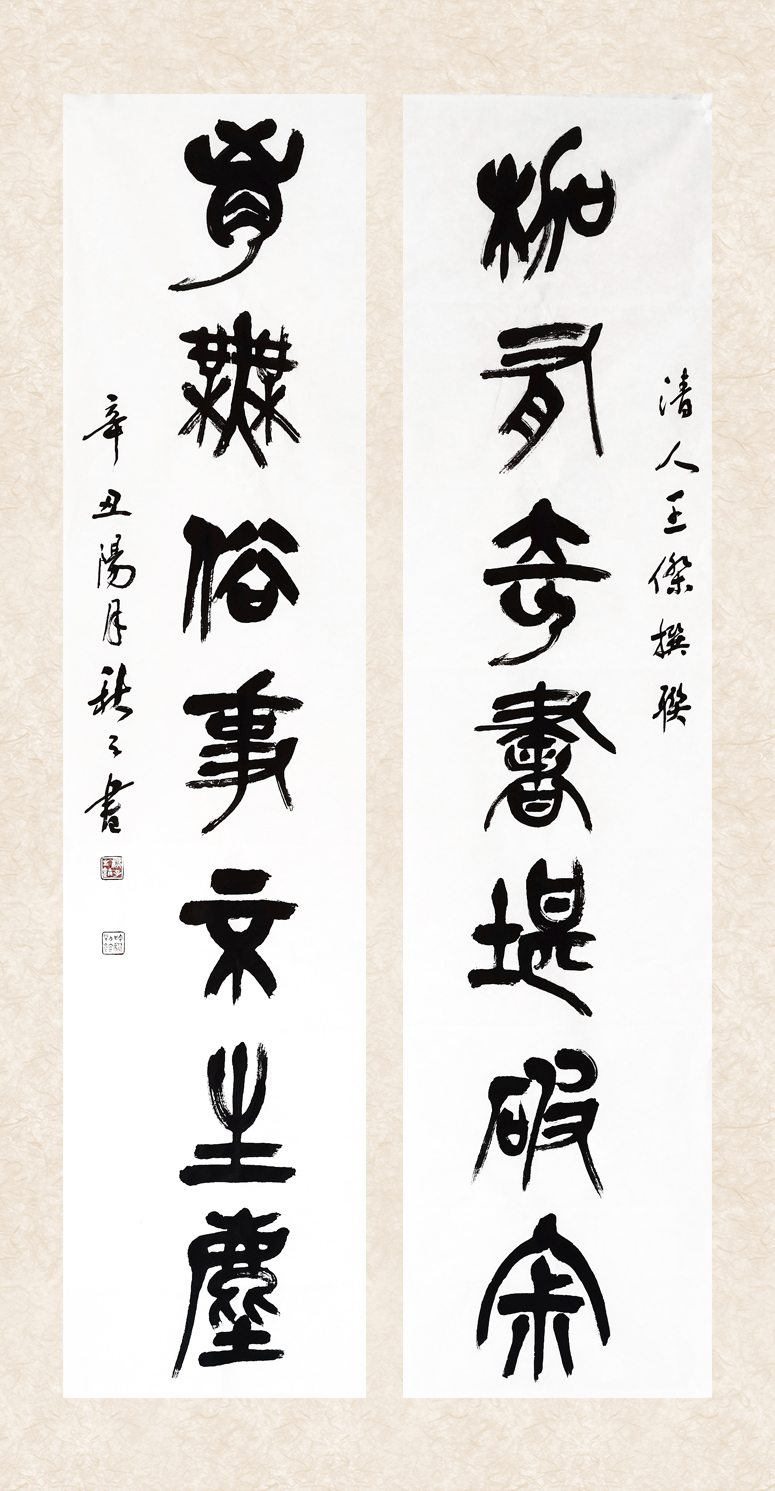 清人王傑撰聯
架有奇書堪破寂
胷無俗事不生塵
辛丑陽月書